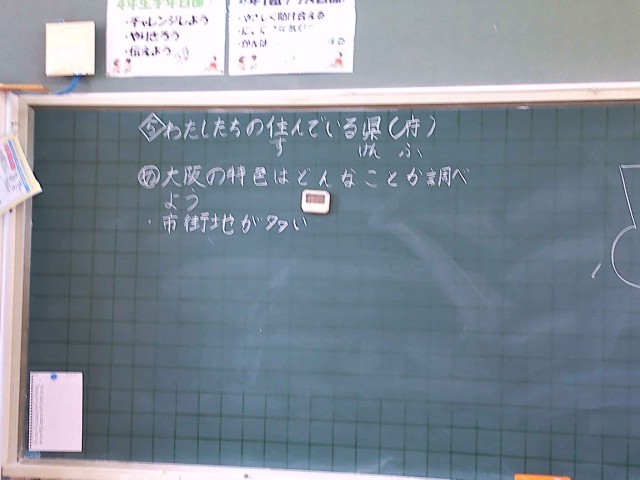 4年生学年目標
・チャレンジしよう
・やりきろう
・伝えよう
・やさしく助け合える
ち わたしたちの住んでいる県(府)
す けん ふ
め 大阪の特色はどんなことか調べ
よう
・市街地が多い